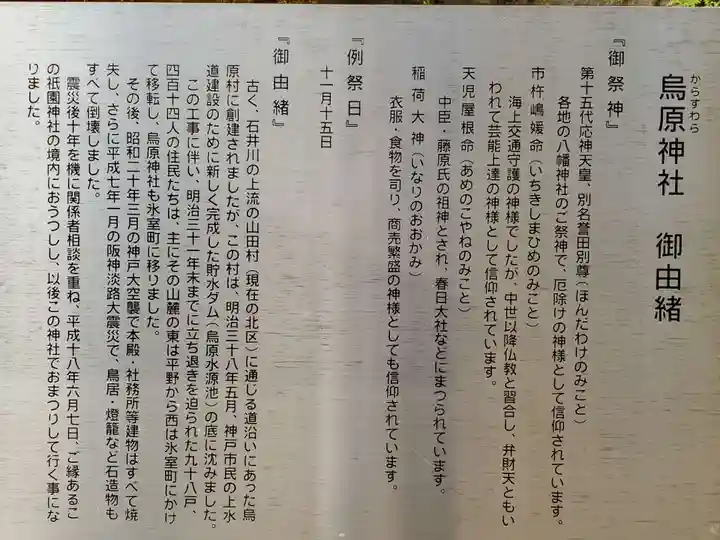 からすわら
烏原神社 御由緒
『御祭神』
第十五代応神天皇、別名誉田別尊(ほんだわけのみこと)
各地の八幡神社のご祭神で、厄除けの神様として信仰されています。
市杵嶋媛命(いちきしまひめのみこと)
海上交通守護の神様でしたが、中世以降仏教と習合し、弁財天ともい
われて芸能上達の神様として信仰されています。
天児屋根命(あめのこやねのみこと)
中臣・藤原氏の祖神とされ、春日大社などにまつられています。
稲荷大神(いなりのおおかみ)
衣服・食物を司り、商売繁盛の神様としても信仰されています。
『例祭日』
十一月十五日
『御由緒』
古く、石井川の上流の山田村(現在の北区)に通じる道沿いにあった烏
原村に創建されましたが、この村は、明治三十八年五月、神戸市民の上水
道建設のために新しく完成した貯水ダム(烏原水源池)の底に沈みました。
この工事に伴い、明治三十一年末までに立ち退きを迫られた九十八戸、
四百十四人の住民たちは、主にその山麓の東は平野から西は氷室町にかけ
て移転し、烏原神社も氷室町に移りました。
その後、昭和二十年三月の神戸大空襲で本殿・社務所等建物はすべて焼
失し、さらに平成七年一月の阪神淡路大震災で、鳥居・燈籠など石造物も
すべて倒壊しました。
震災後十年を機に関係者相談を重ね、平成十八年六月七日、ご縁あるこ
の祇園神社の境内におうつしし、以後この神社でおまつりして行く事にな
りました。